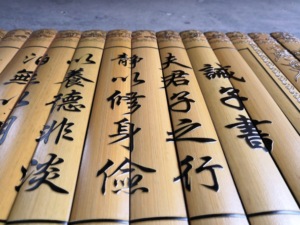 誡子書
夫君子之行
靜以修身儉
以養德非淡
泊無以明